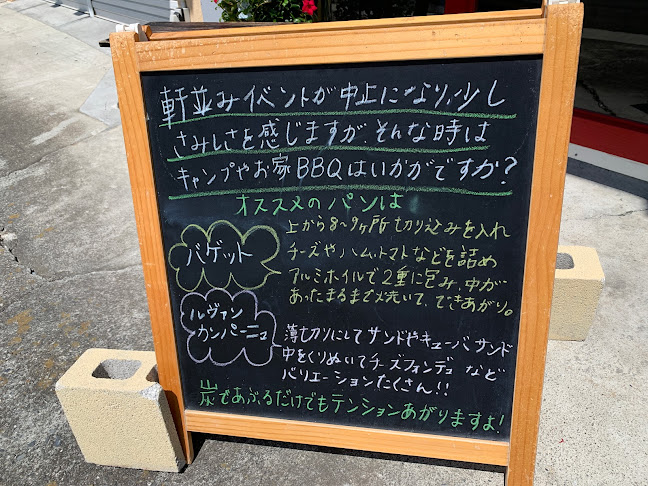 軒並みイベントが中止になり、少し
さみしさを感じますが、そんな時は
キャンプやお家BBQはいかがですか?
オススメのパンは
バゲット
上から8~9ヶ所切り込みを入れ
チーズやハム、トマトなどを詰め
アルミホイルで2重に包み、中が
あったまるまで焼いて、できあがり。
ルヴァン
カンパーニュ
薄切りにしてサンドやキューバサンド
中をくりぬいてチーズフォンデュなど
バリエーションたくさん!!
炭であぶるだけでもテンションあがりますよ!